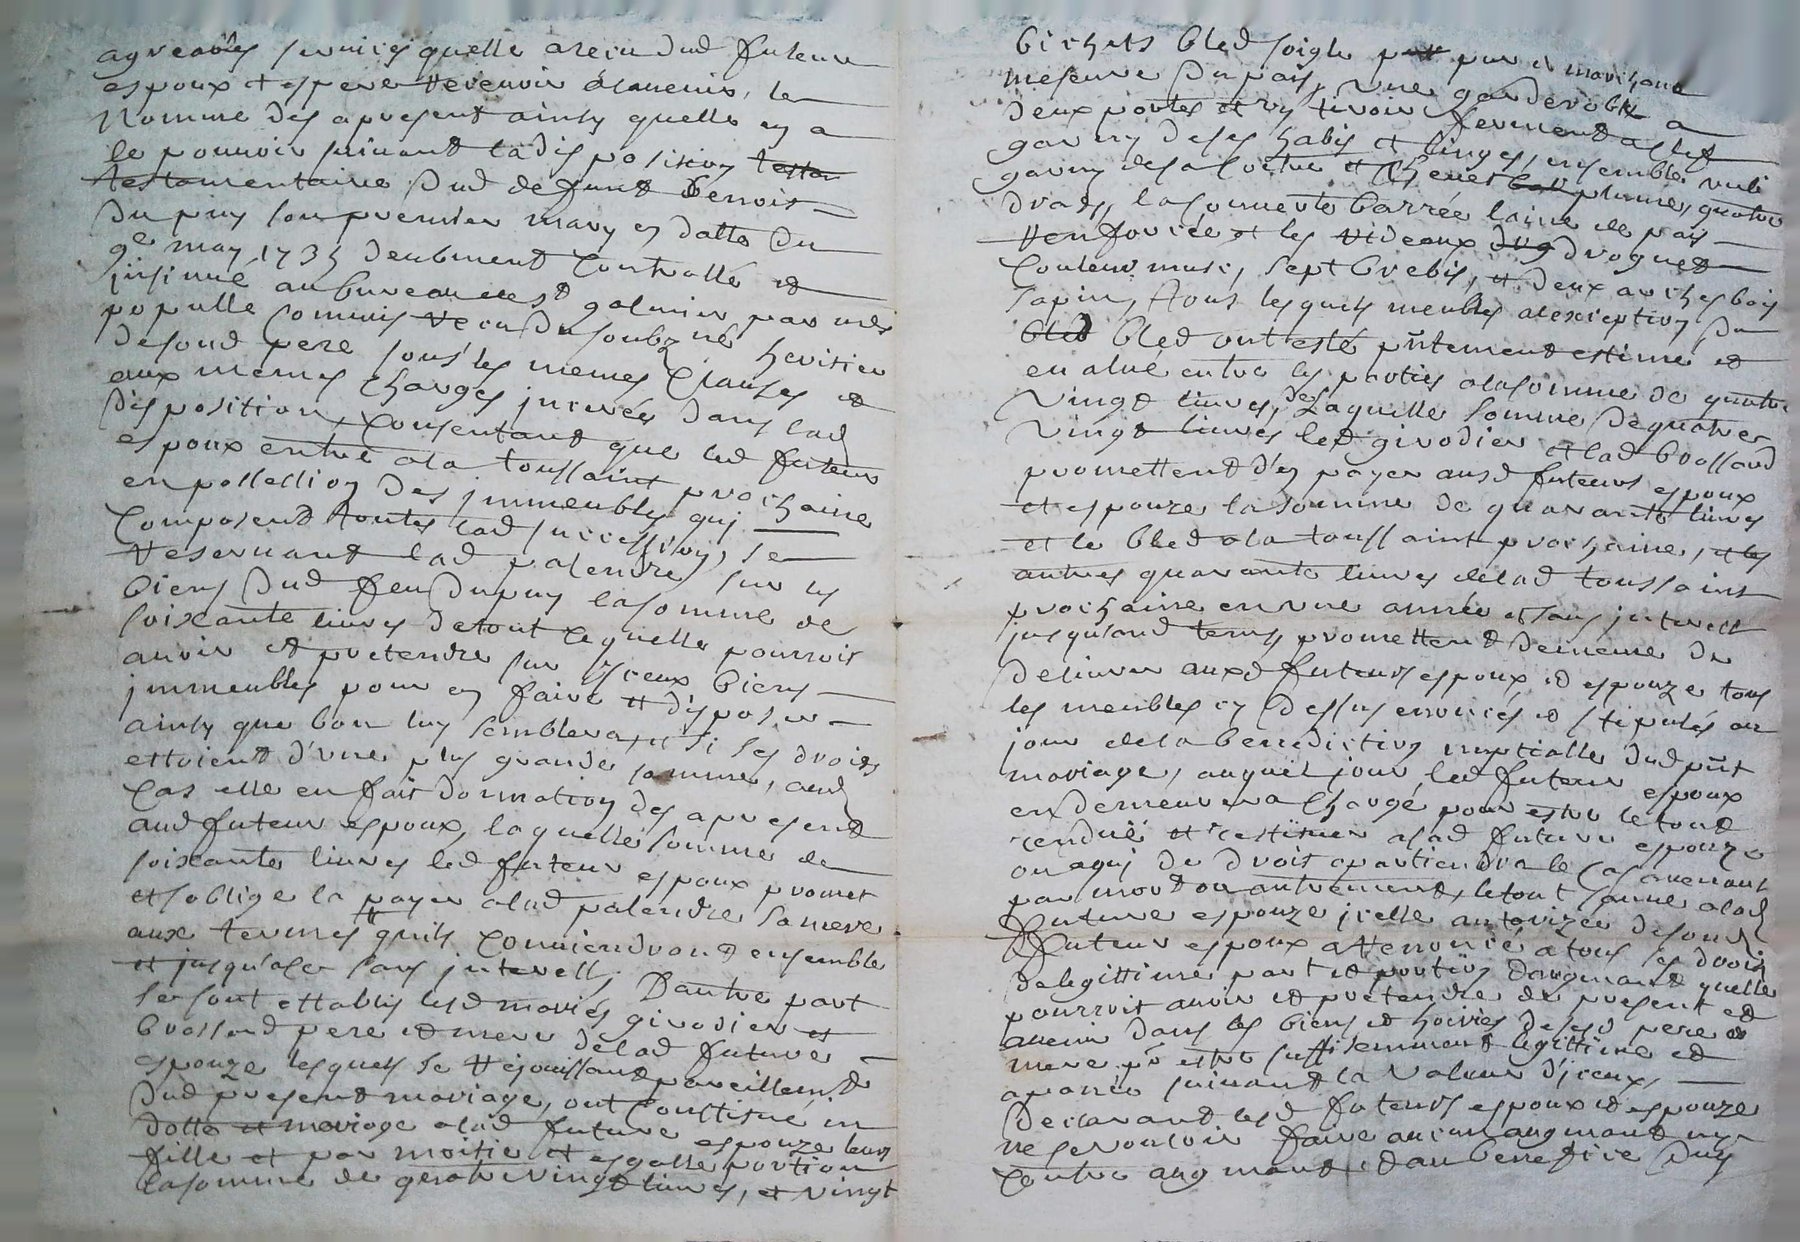 agreables services quelle a receu dud futeur
espoux et espere recevoir alavenir, le
Nomme des apresent ainsy quelle en a
le pouvoir suivant la disposition testa
testamentaire dud defunt Benoist
Dupuy son premier mary en datte du
9e may 1735 deubment Controllé et
insinué au bureau de st galmier par mes
populle Commis receu du soubzné heritier
desond pere sous les memes Clauses et
aux memes Charges jncerée dans lad
disposition, Consentant que led futeur
espoux entre ala toussaint prochaine
en possession des jmmeubles quj
Composent toutes lad succession, se
reservant lad palendre sur les
biens dud feu Dupuy lasomme de
soixante livres detout cequelle pourroit
avoir et pretendre sur jceux biens
jmmeubles pour en faire et disposer
ainsy que bon luy semblera, et si ses droits
ettoient d'une plus grande somme, aud
Cas elle en fait donnation des apresent
aud futeur espoux, laquelle somme de
soixante livres led futeur espoux promet
et soblige la payer alad palendre samere
aux termes quils Conviendront ensemble
et jusqu'alors sans jnterest, Dautre part
se sont ettablis lesd mariés girodier et
brossard pere et mere delad future
espouze lesquels se rejouissant pareillemt
dud present mariage, ont Constitué en
dotte et mariage alad future espouze leur
fille et par moitié et esgalle portion
lasomme de quatrevingt livres, et vingt
bichets bled soigle pur et marchand
mesure du pais, une garderobe a
deux portes et un tiroir fermant a clef
garny de ses habis et linges, ensemble un lit
garny de sa coetre et Chevet plume, quatre
draps, la couverte barrée laine de pais
renforcée et les rideaux drog droguet
Couleur musc, sept brebis, et deux arches bois
sapin, tous lesquels meubles alexception du
bled bled ont esté pntement estimé et
evalué entre les parties alasomme de quatre
vingt livres, de laquelle somme de quatre
vingt livres led girodier et lad brossard
promettent d'en payer ausd futeurs espoux
et espouze la somme de quarante livres
et le bled ala toussaint prochaine, et les
autres quarante livres delad toussaint
prochaine en une année et sans jnterest
jusquaud tems, promettent de meme de
delivrer auxd futeurs espoux et espouze tous
les meubles cy dessus enoncés et stipulés au
jour dela benediction nuptialle dud pnt
mariage, auquel jour led futeur espoux
en demeurera Chargé pour estre le tout
rendu et restituer alad future espouze
ou aquj de droit apartiendra le Cas avenant
par mort ou autrement, letout comme alad
future espouze jcelle autorizée desond
futeur espoux a renoncé atous ses droits
de legittime part et portion daugmant quelle
pourroit avoir et pretendre de present et
avenir dans les biens et hoiries desesd pere et
mere pr estre suffisemment legittime et
apanée suivant la valeur d'jceux,
Declarant lesd futeurs espoux et espouze
ne se vouloir faire aucun augmant ny
Contre augmant et au benefice des